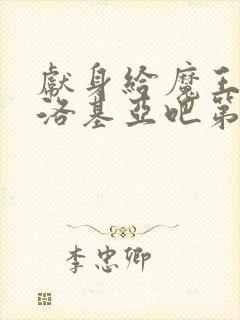 獻身給魔王
洛基亞吧第
李忠卿